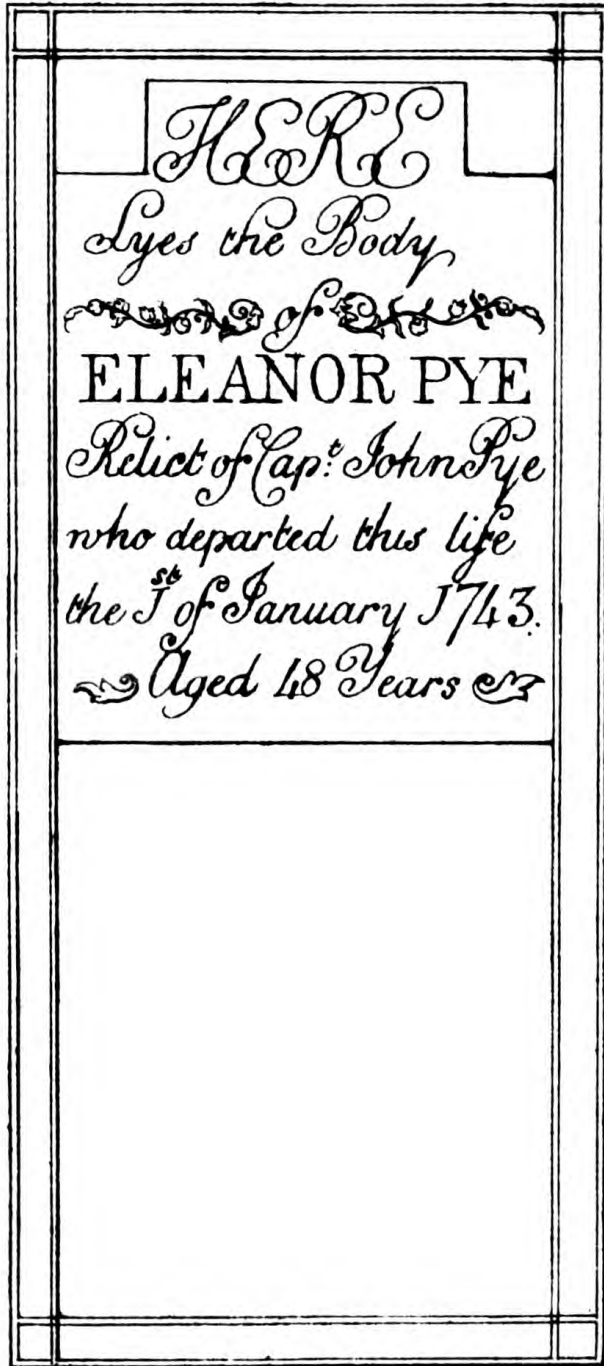 HERE
Lyes the Body
of
ELEANOR PYE
Relict of Capt. John Pye
who departed this life
the 1st of January 1743.
Aged 48 Years